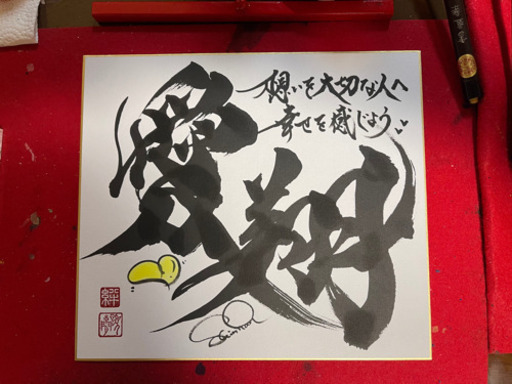 想いを大切な人へ
幸せを感じよう
愛翔
絆